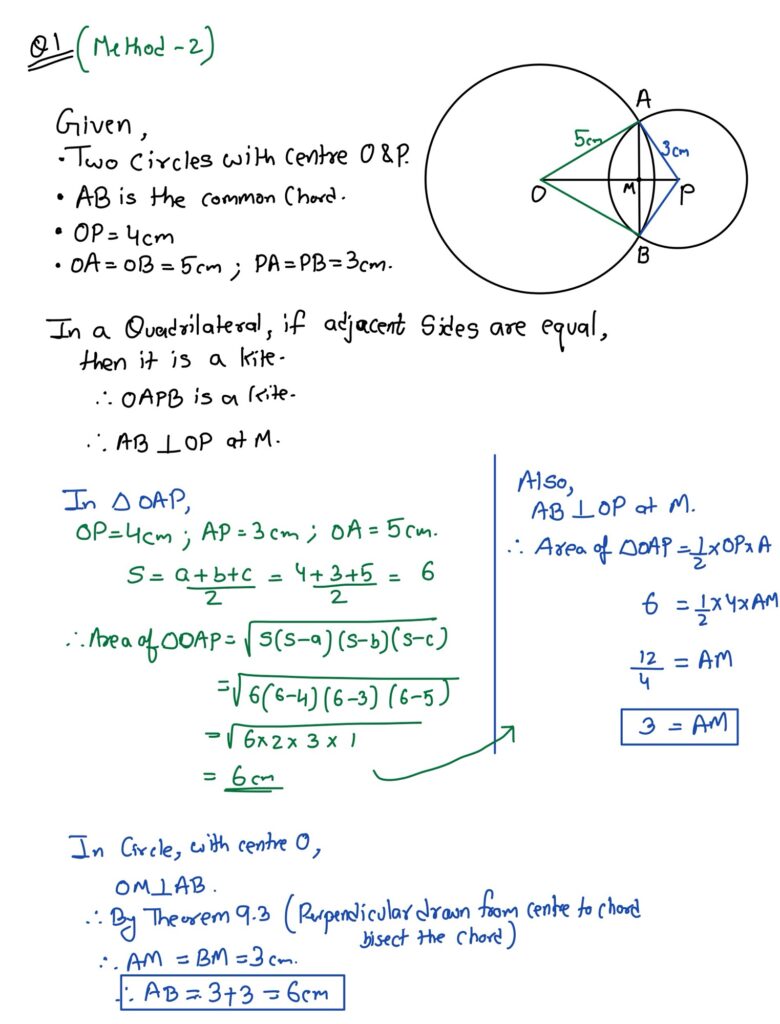 Q1 (Method-2)
Given,
• Two Circles with Centre O & P.
• AB is the common Chord.
• OP = 4cm
• OA = OB = 5cm ; PA = PB = 3cm.
A
5cm
3cm
O
M
P
B
In a Quadrilateral, if adjacent Sides are equal,
then it is a kite.
∴ OAPB is a kite.
∴ AB ⊥ OP at M.
In △ OAP,
OP=4cm ; AP = 3cm ; OA = 5cm.
S = a+b+c/2 = 4+3+5/2 = 6
∴ Area of △OAP = √S(S-a)(S-b)(S-c)
= √6(6-4)(6-3)(6-5)
= √6x2x3x1
= 6cm
Also,
AB ⊥ OP at M.
∴ Area of △OAP = 1/2 x OP x A
6 = 1/2 x 4 x AM
12/4 = AM
3 = AM
In Circle, with centre O,
OM ⊥ AB.
∴ By Theorem 9.3 (Perpendicular drawn from centre to chord
bisect the chord)
∴ AM = BM = 3cm.
∴ AB = 3+3 = 6cm